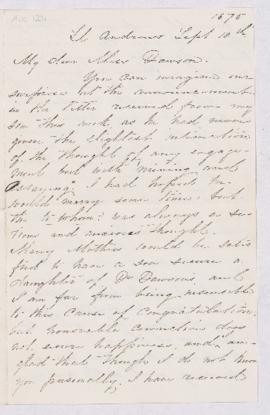 1875
St Andrews Sept 10th
My dear Miss Dawson.
You can imagine our
surprise at the announcement
in the letter received from my
son this week, as he had never
given the slightest intimation
of the thought of any engage-
ment but with "mining and
assaying". I had hoped he
would marry some time: but
the "to whom?" was always a se-
rious and anxious thought.
Many Mothers would be satis-
fied to have a son secure a
daughter of Dr Dawsons and
I am far from being insensible
to this cause of congratulation,
but honorable connections does
not secure happiness, and I am
glad that though I do not know
you personally, I have received